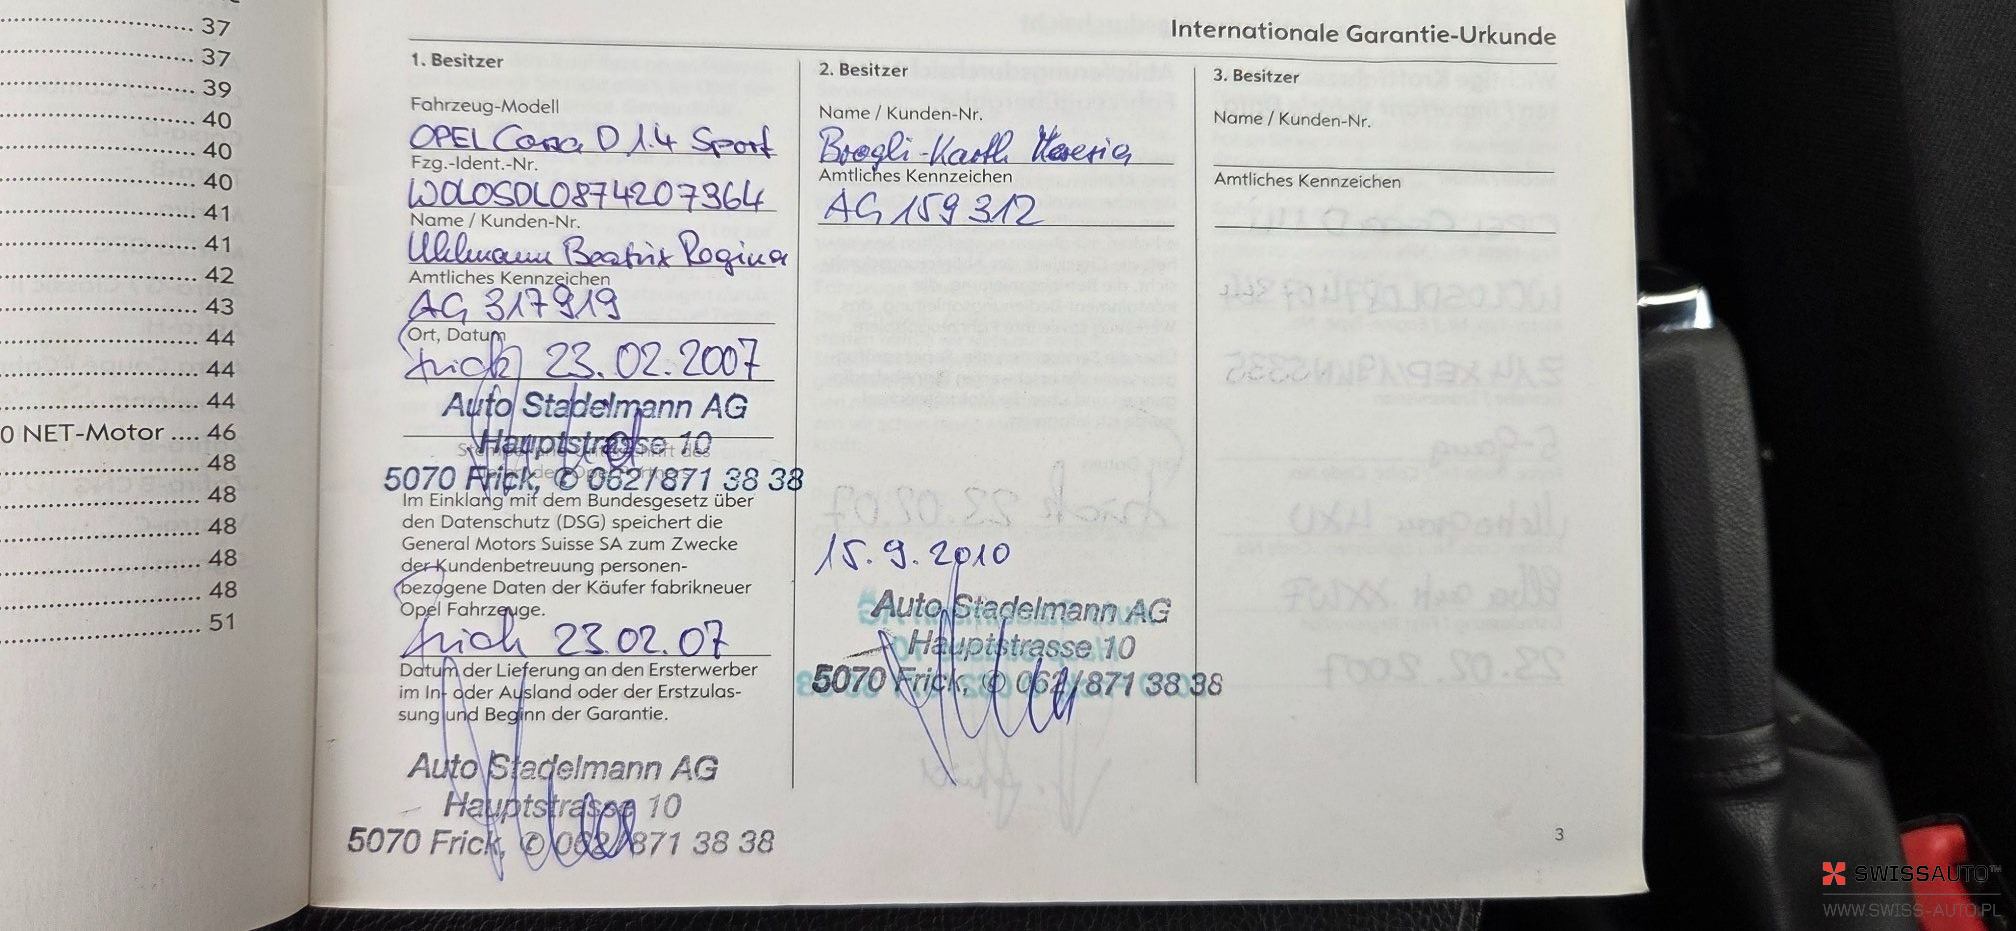 37
37
39
40
40
40
41
41
42
43
44
44
44
0 NET-Motor .... 46
48
48
48
48
48
51
Internationale Garantie-Urkunde
1. Besitzer
Fahrzeug-Modell
OPEL Corsa D 1.4 Sport
Fzg.-Ident.-Nr.
W0L0SDL0874207364
Name / Kunden-Nr.
Uhlmann Beatrix Regina
Amtliches Kennzeichen
AG 317919
Ort, Datum
Frick 23.02.2007
Auto Stadelmann AG
Hauptstrasse 10
5070 Frick, ✆ 062/871 38 38
Im Einklang mit dem Bundesgesetz über
den Datenschutz (DSG) speichert die
General Motors Suisse SA zum Zwecke
der Kundenbetreuung personen-
bezogene Daten der Käufer fabrikneuer
Opel Fahrzeuge.
Frick 23.02.07
Datum der Lieferung an den Ersterwerber
im In- oder Ausland oder der Erstzulas-
sung und Beginn der Garantie.
Auto Stadelmann AG
Hauptstrasse 10
5070 Frick, ✆ 062/871 38 38
2. Besitzer
Name / Kunden-Nr.
Brogli-
Amtliches Kennzeichen
AG 159312
15.9.2010
Auto Stadelmann AG
Hauptstrasse 10
5070 Frick, ✆ 062/871 38 38
3. Besitzer
Name / Kunden-Nr.
Amtliches Kennzeichen
3
SWISSAUTO™
WWW.SWISS-AUTO.PL